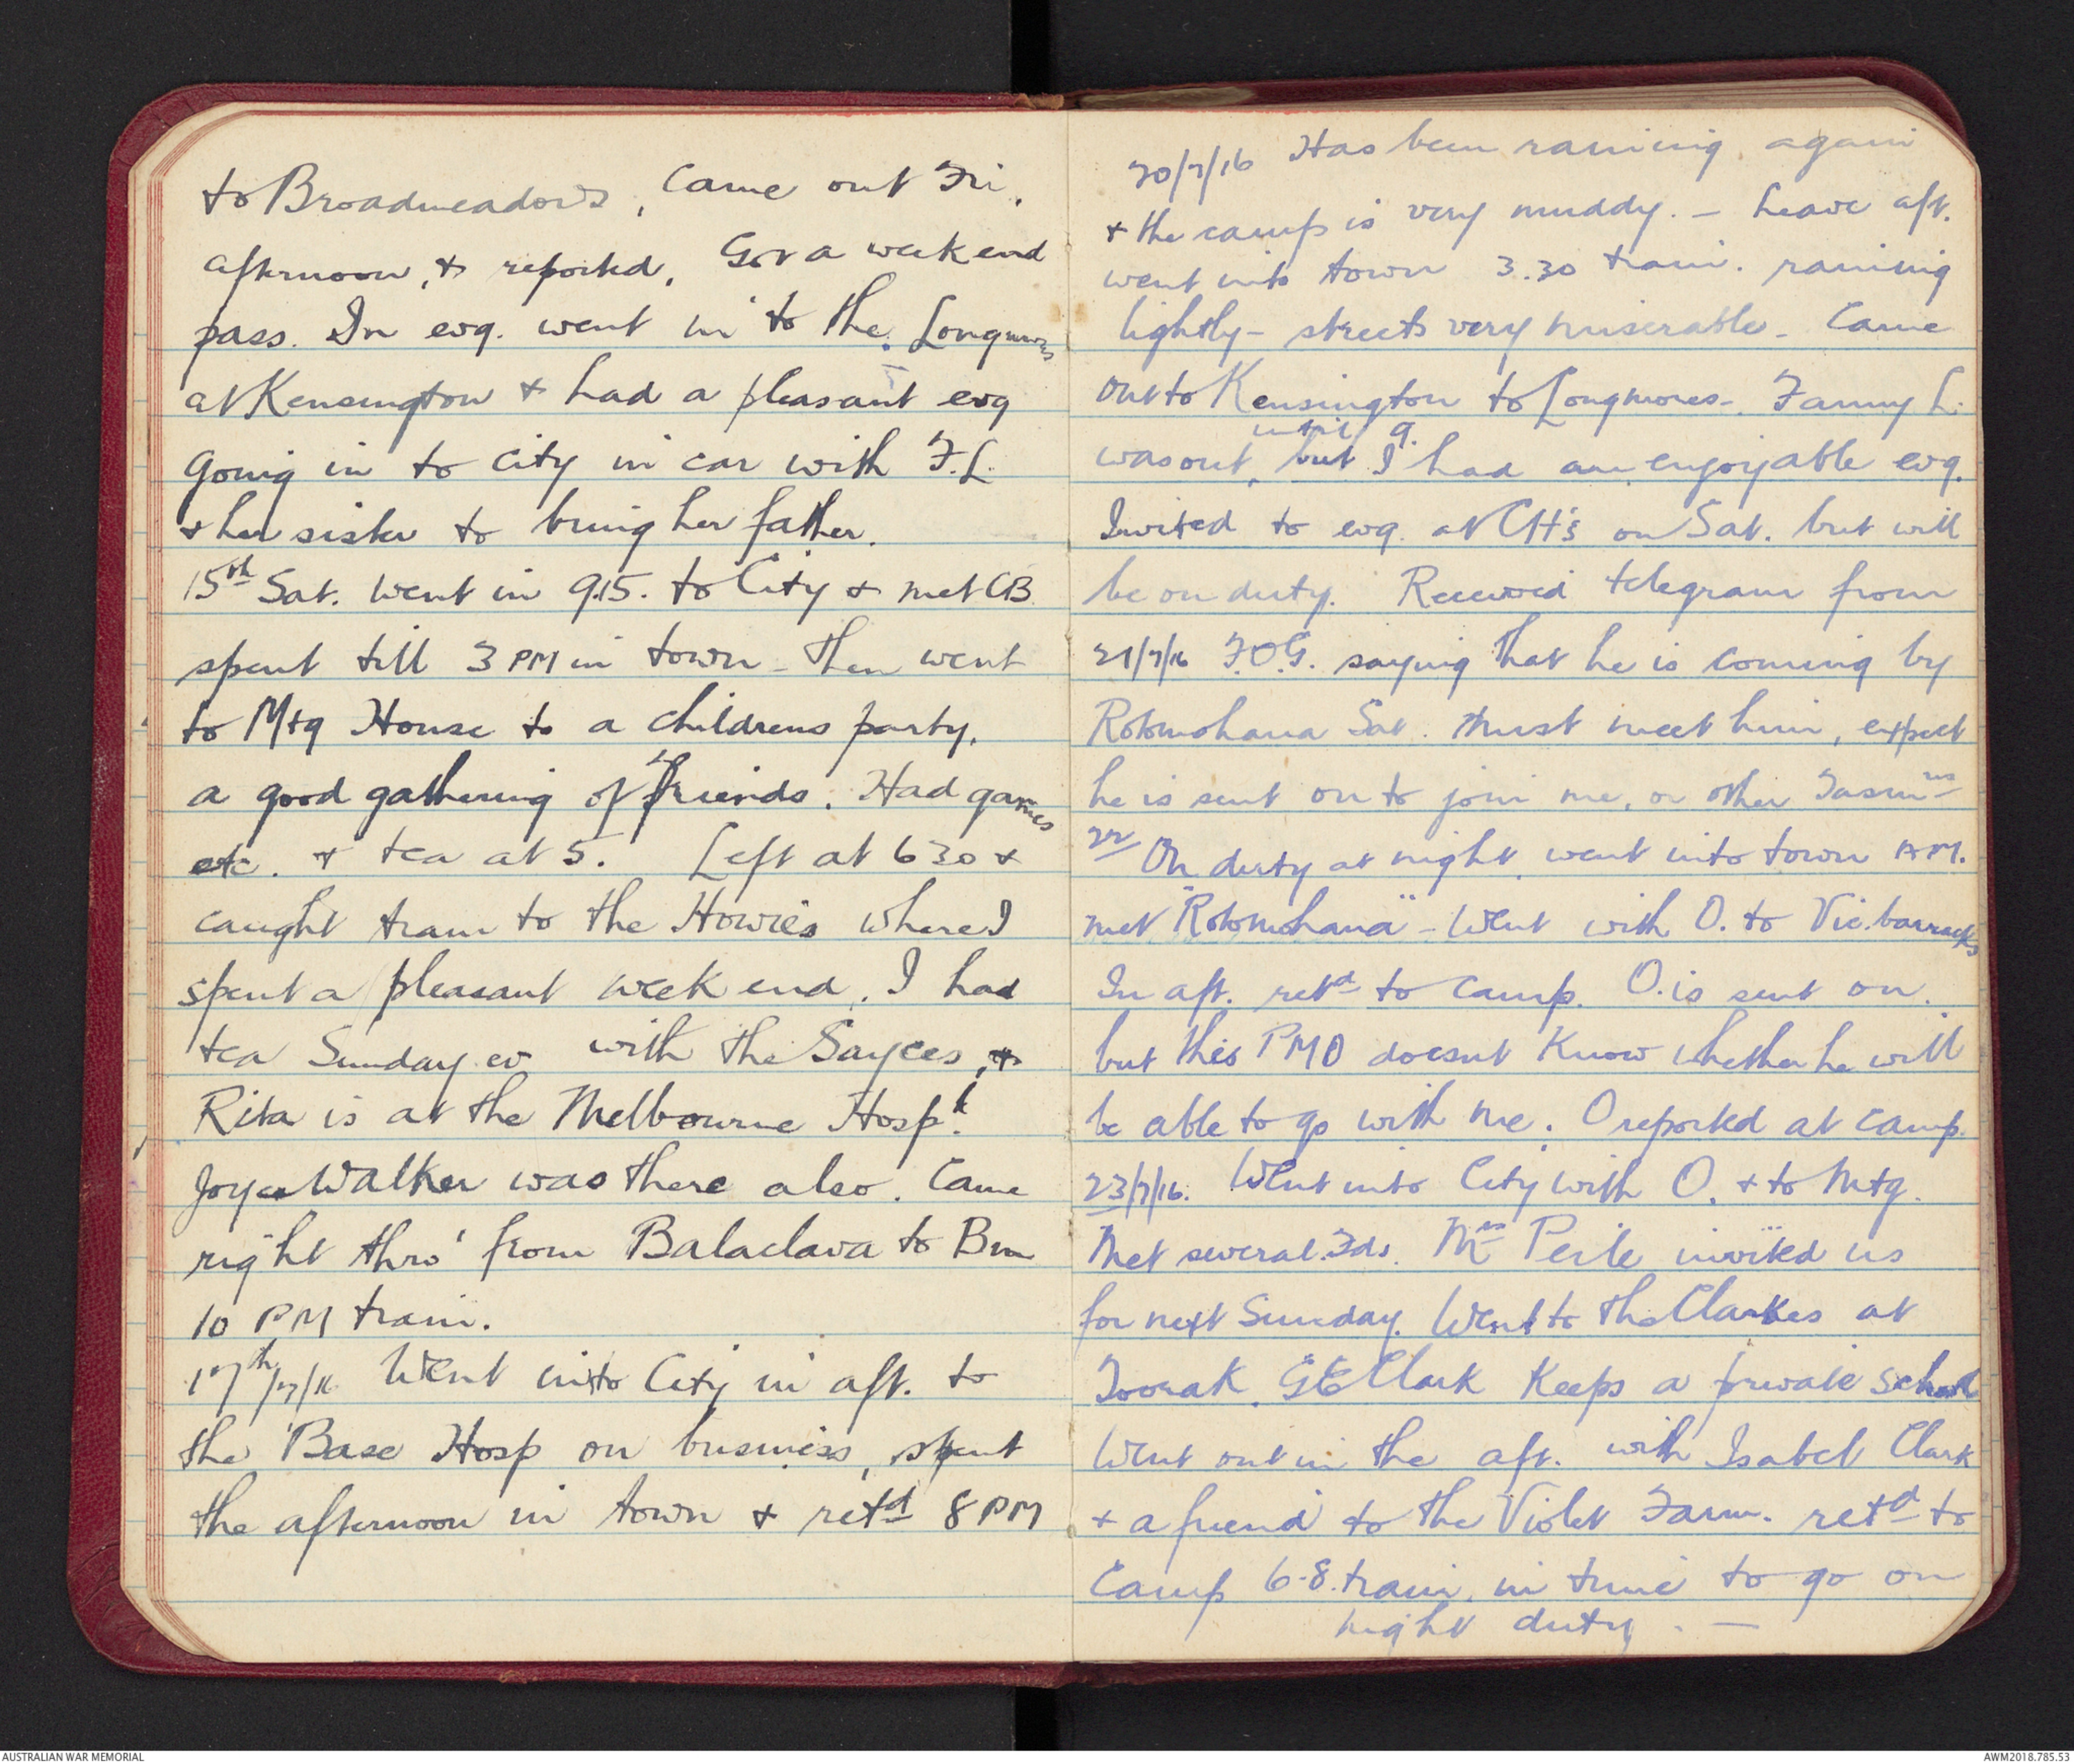 to Broadmeadows, Came out Fri.
afternoon, & reported, Got a week end
pass. In evg. went in to the Longmores
at Kensington & had a pleasant evg
going in to city in car with F.L.
& her sister to bring her father.
15th Sat. went in 9.15. to City & met CB
spent till 3 PM in town - Then went
to Mtg House to a childrens party,
a good gathering of friends. Had games
etc. & tea at 5. Left at 6 30 &
caught tram to the Howie's where I
spent a pleasant week end. I had
tea Sunday ev with the Sayces, &
Rita is at the Melbourne Hospl.
Joyce Walker was there also. Came
right thro' from Balaclava to Bm
10 PM train.
17th/7/16 Went into City in aft. to
the Base Hosp on business, spent
the afternoon in town & retd 8 PM
20/7/16 Has been raining again
& the camp is very muddy. - Leave aft.
went into town 3.30 train. raining
lightly - streets very miserable - Came
out to Kensington to Longmores -. Fanny L.
until 9.
was out, but I had an enjoyable evg.
Invited to evg. at CH's on Sat. but will
be on duty. Received telegram from
21/7/16 F.O.G. saying that he is coming by
Rotomohana Sat. Must meet him, expect
he is sent on to join me, or other Tasmns
22 On duty at night, went into town AM.
met "Rotomohana" - Went with O. to Vic. barracks
In aft. retd to camp. O. is sent on.
but this PMO doesnt know whether he will
be able to go with me. O reported at camp.
23/7/16. Went into City with O. & to Mtg.
Met several Fds. Mrs Peile invited us
for next Sunday. Went to the Clarkes at
Toorak. G E Clark keeps a private school
Went out in the aft. with Isabel Clark
& a friend to the Violet Farm. retd to
Camp 6-8. train, in time to go on
night duty. -
AUSTRALIAN WAR MEMORIAL
AWM2018.785.53